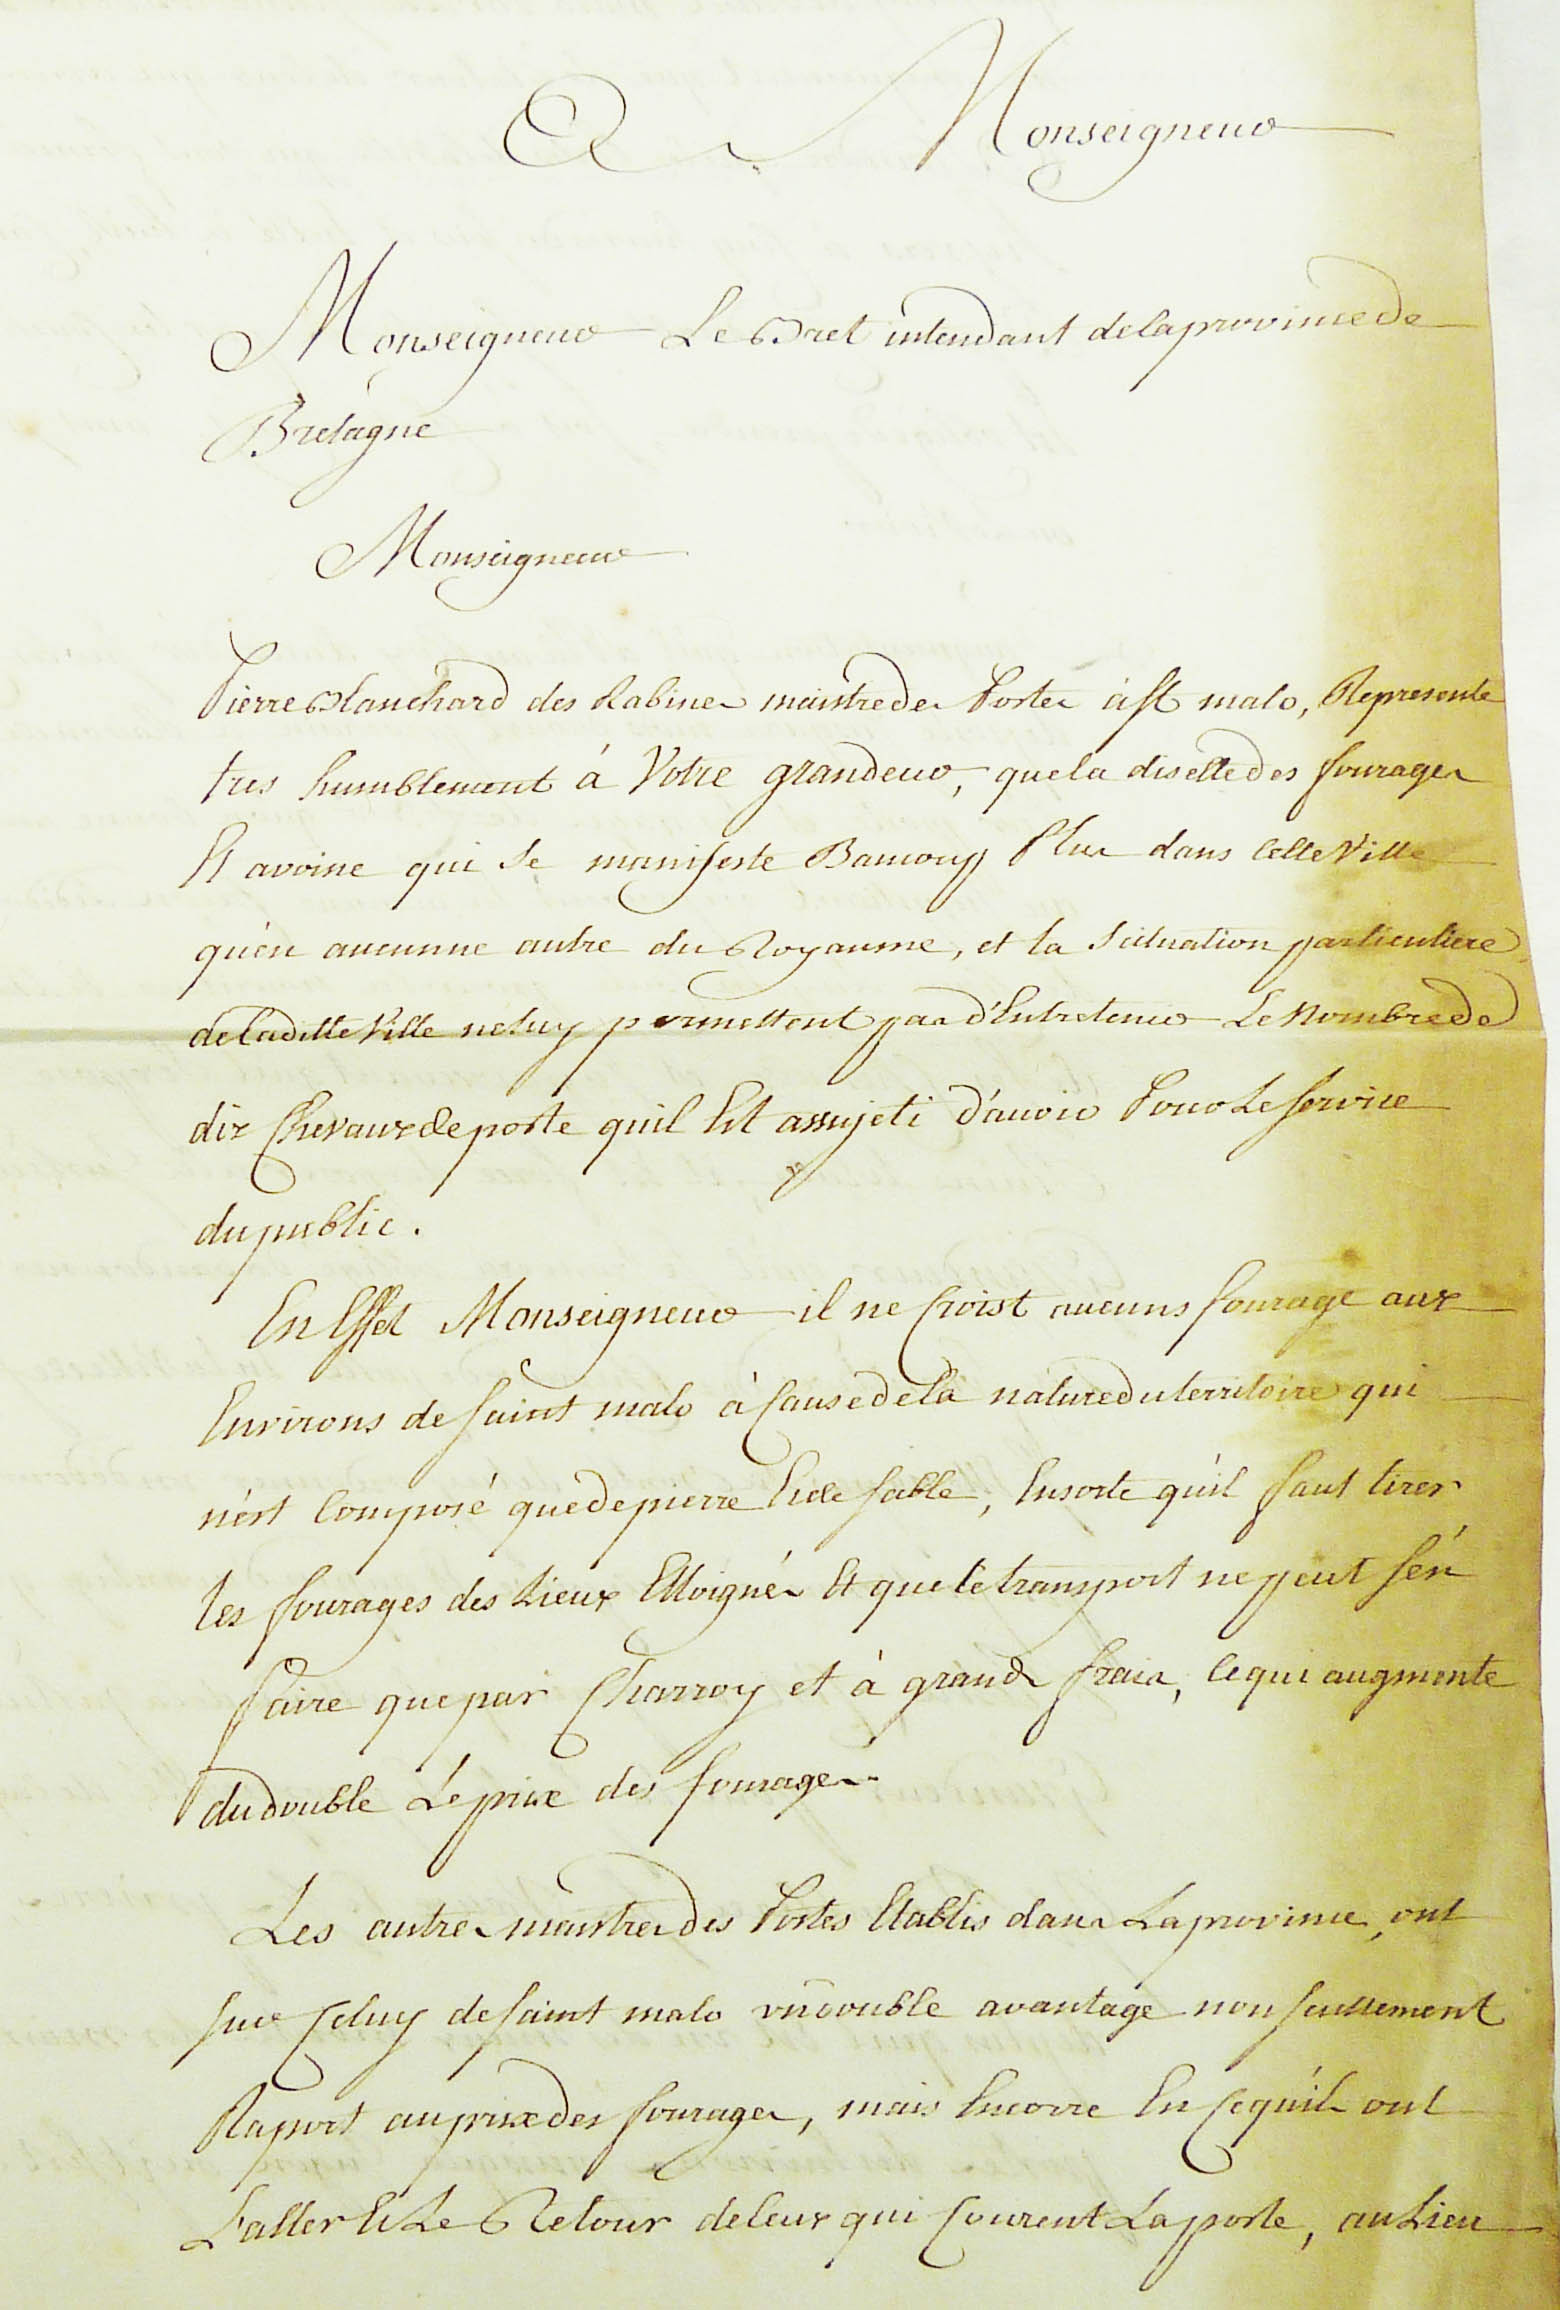 A Monseigneur
Monseigneur Le Bret intendant de la province de
Bretagne
Monseigneur
Pierre Blanchard des Rabines maistre des Postes à St malo, Represente
tres humblement à Votre grandeur, que la disette des fourages
Et avoine qui se manifeste Baucoup Plus dans Cette Ville
qu'en aucunne autre du Royaume, et la Scituation particuliere
de laditte Ville ne luy permettent pas d'Entretenir Le Nombre de
dix Chevaux de poste quil Est assujeti d'avoir Pour Le Service
du public.
En Effet Monseigneur il ne Croist aucuns fourage aux
Environs de Saint malo à Cause de la nature du territoire qui
n'est Composé que de pierre Et de sable, Ensorte qu'il faut tirer
les fourages des Lieux Elloignés Et que le transport ne peut s'én
faire que par Charroy et à grands frais, Ce qui augmente
du double Le prix des fourages.
Les autres maistres des Postes Etablis dans La province, ont
sur Celuy de Saint malo un double avantage non seullement
Raport au prix des fourages, mais Encorre En Ce qu'ils ont
L'aller Et Le Retour de Ceux qui Courent La poste, au Lieu